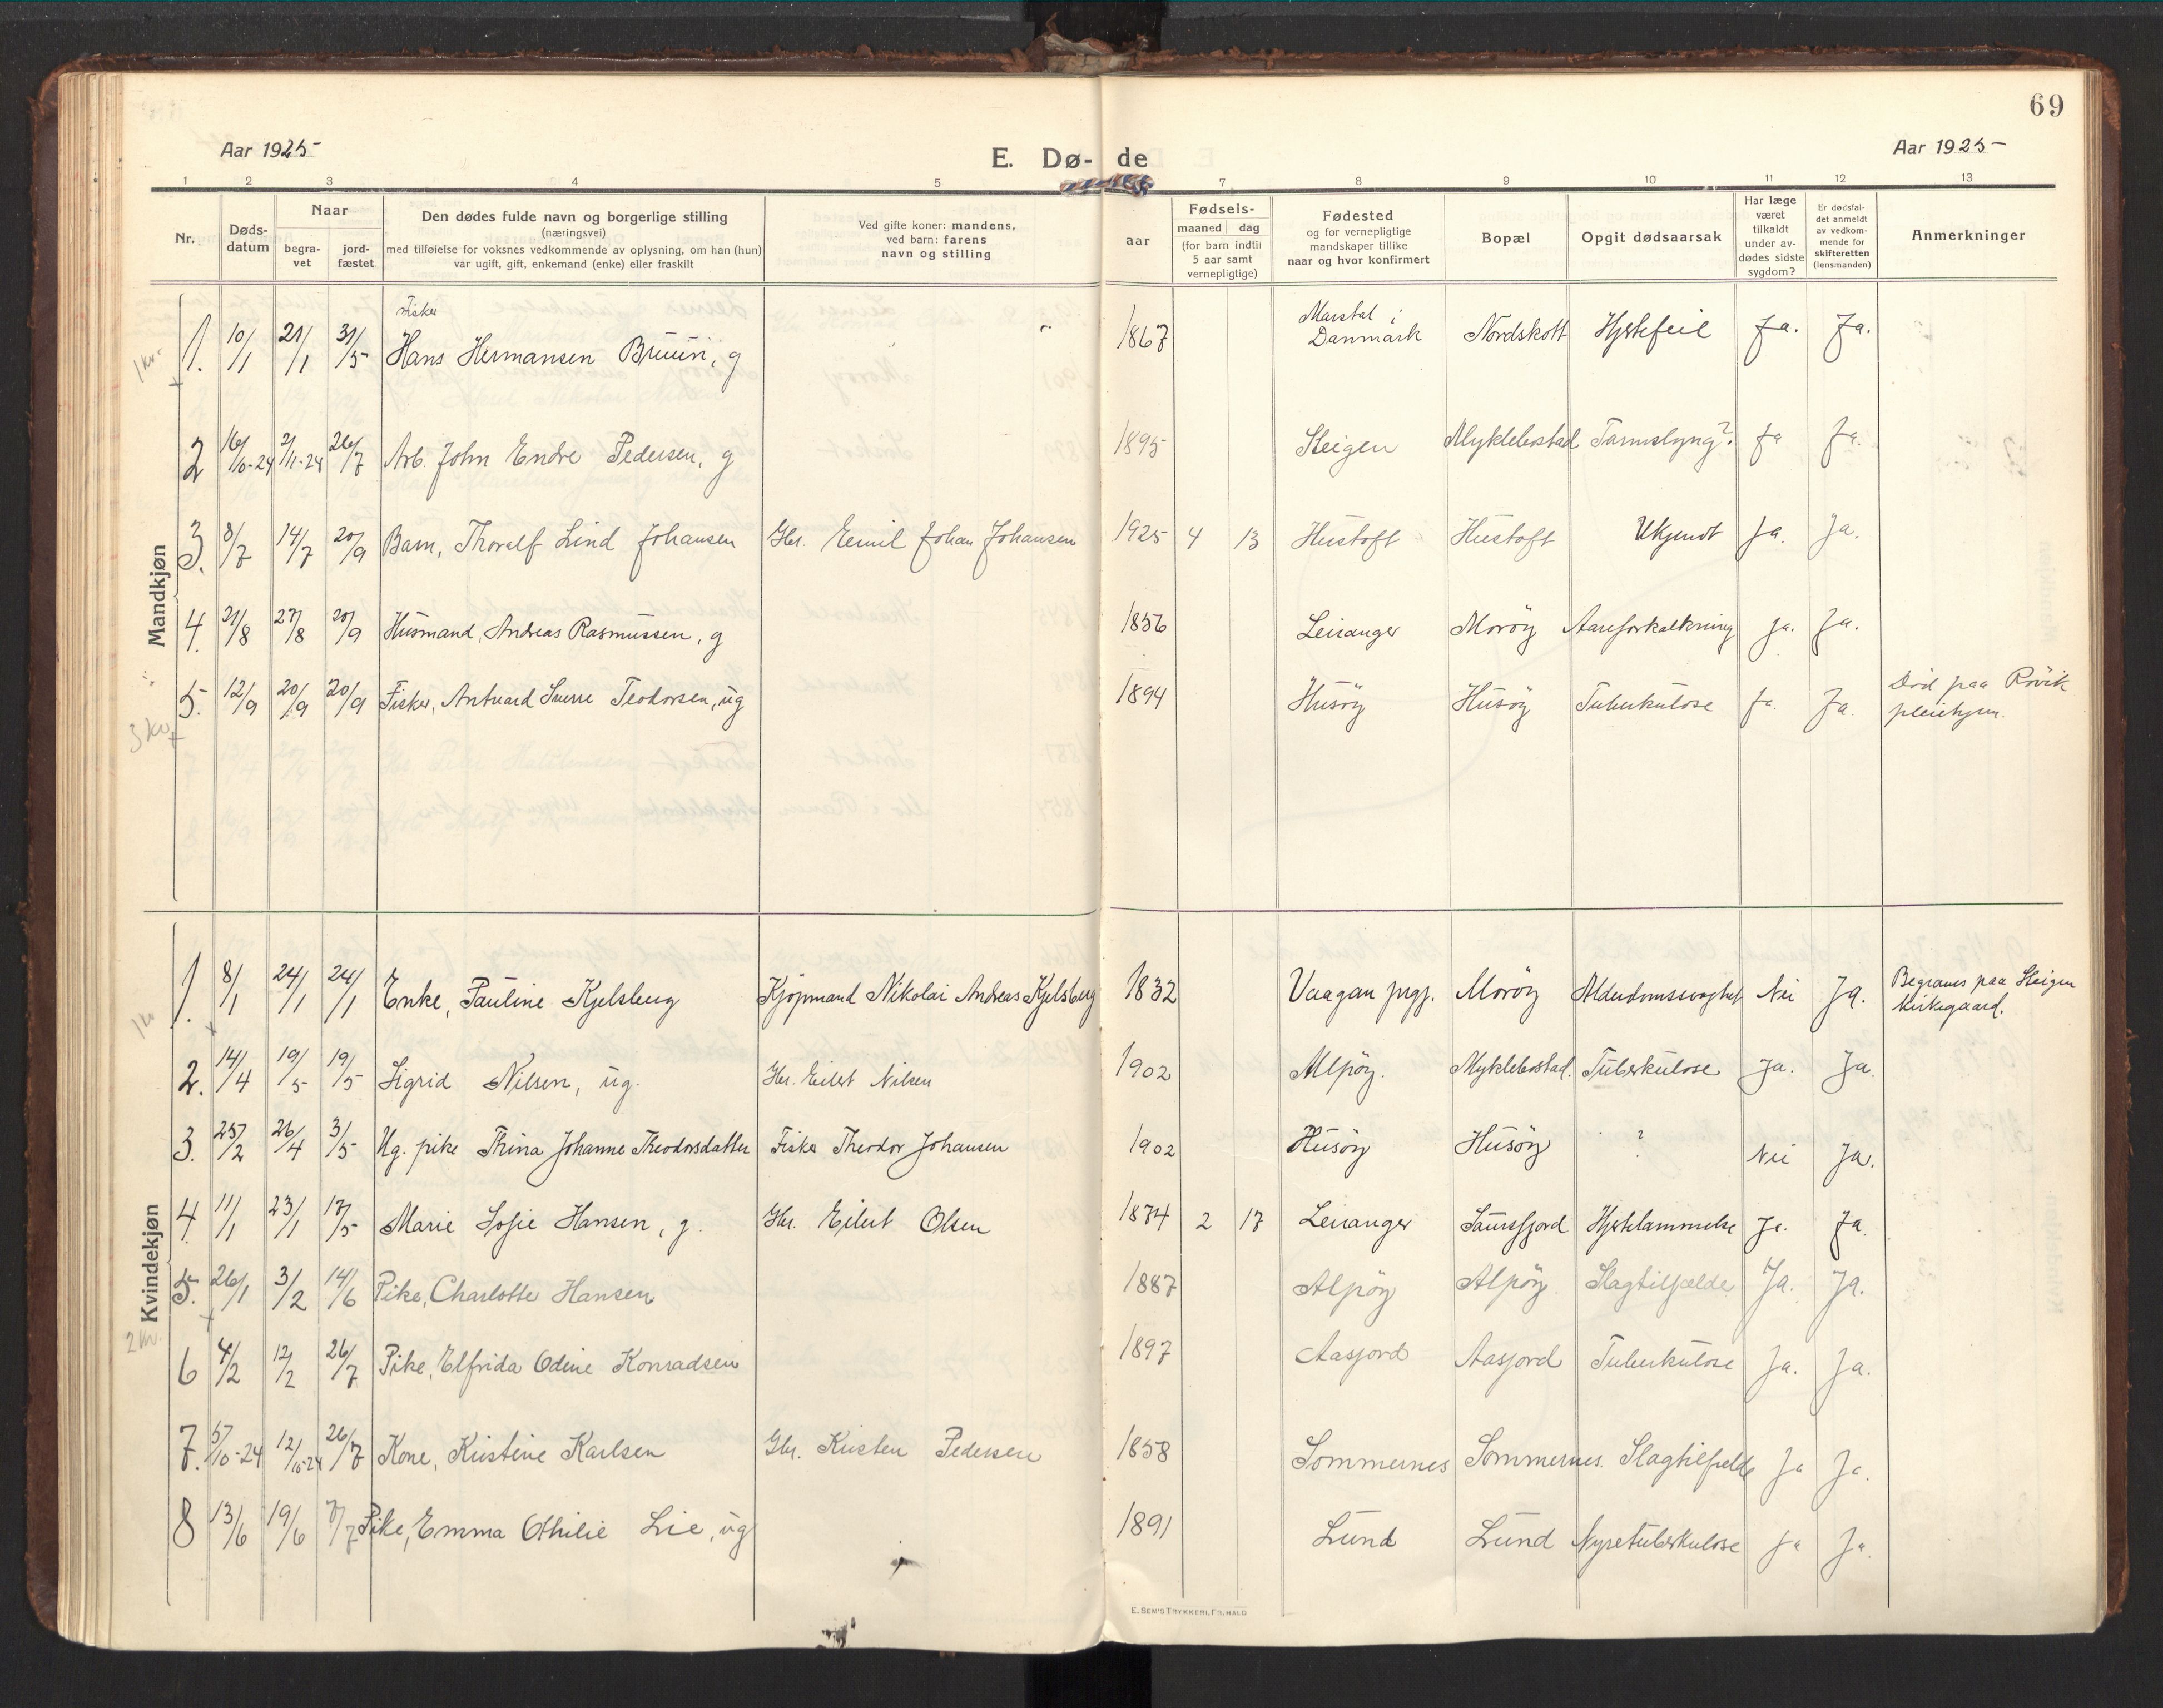 69
Aar 1925
E. Dø- de
Aar 1925
1 2 3 4 5 7 8 9 10 11 12 13
Nr.
Døds-
datum
Naar
begra-
vet
jord-
fæstet
Den dødes fulde navn og borgerlige stilling
(næringsvei)
med tilføielse for voksnes vedkommende av oplysning, om han (hun)
var ugift, gift, enkemand (enke) eller fraskilt
Ved gifte koner: mandens,
ved barn: farens
navn og stilling
aar
Fødsels-
maaned dag
(for barn indtil
5 aar samt
vernepligtige)
Fødested
og for vernepligtige
mandskaper tillike
naar og hvor konfirmert
Bopæl
Opgit dødsaarsak
Har læge
været
tilkaldt
under av-
dødes sidste
sygdom?
Er dødsfal-
det anmeldt
av vedkom-
mende for
skifteretten
(lensmanden)
Anmerkninger
Mandkjøn
Fisker
1. 10/1 21/1 31/5 Hans Hermansen Bruun, g 1867 Marstal i
Danmark Nordskott Hjertefeil Ja. Ja.
1 kv.
2 16/10-24 2/11-24 26/7 Arb. John Endre Pedersen, g 1895 Steigen Myklebostad Tarmslyng? Ja Ja.
3. 8/7 14/7 20/9 Barn, Thoralf Lind Johansen Gbr. Emil Johan Johansen 1925 4 13 Hustoft Hustoft Ukjendt Ja. Ja.
4. 21/8 27/8 20/9 Husmand, Andreas Rasmussen, g 1856 Leiranger Moröy Aareforkalkning Ja. Ja.
5. 12/9 20/9 20/9 Fisker, Antvard Sverre Teodorsen, ug 1894 Husöy Husöy Tuberkulose Ja. Ja. Död paa Rövik
pleiehjem.
3 kv.
Kvindekjøn
1. 8/1 24/1 24/1 Enke, Pauline Kjelsberg Kjöpmand Nikolai Andreas Kjelsberg 1832 Vaagan prgj. Moröy Alderdomssvaghet Nei Ja. Begraves paa Steigen
kirkegaard.
2. 14/4 19/5 19/5 Sigrid Nilsen, ug. Gbr. Eilert Nilsen 1902 Alpöy. Myklebostad. Tuberkulose Ja. Ja.
3. 25/2 26/4 3/5 Ug. pike Thina Johanne Theodorsdatter Fisker Theodor Johansen 1902 Husöy Husöy ? Nei Ja.
4. 11/1 23/1 17/5 Marie Sofie Hansen, g. Gbr. Eilert Olsen 1874 2 17 Leiranger Saursfjord Hjertelammelse Ja. Ja.
5. 26/1 3/2 14/6 Pike, Charlotte Hansen 1887 Alpöy Alpöy Slagtilfælde Ja. Ja.
2 kv.
6 4/2 12/2 26/7 Pike, Elfrida Odine Konradsen 1897 Aasjord Aasjord Tuberkulose Ja. Ja.
7. 5/10-24 12/10-24 26/7 Kone, Kristine Karlsen Gbr. Kristen Pedersen 1858 Sommernes Sommernes. Slagtilfælde Ja Ja.
8 13/6 19/6 7/7 Pike, Emma Othilie Lie, ug 1891 Lund Lund Nyretuberkulose Ja Ja.
E. SEM'S TRYKKERI, FR.HALD